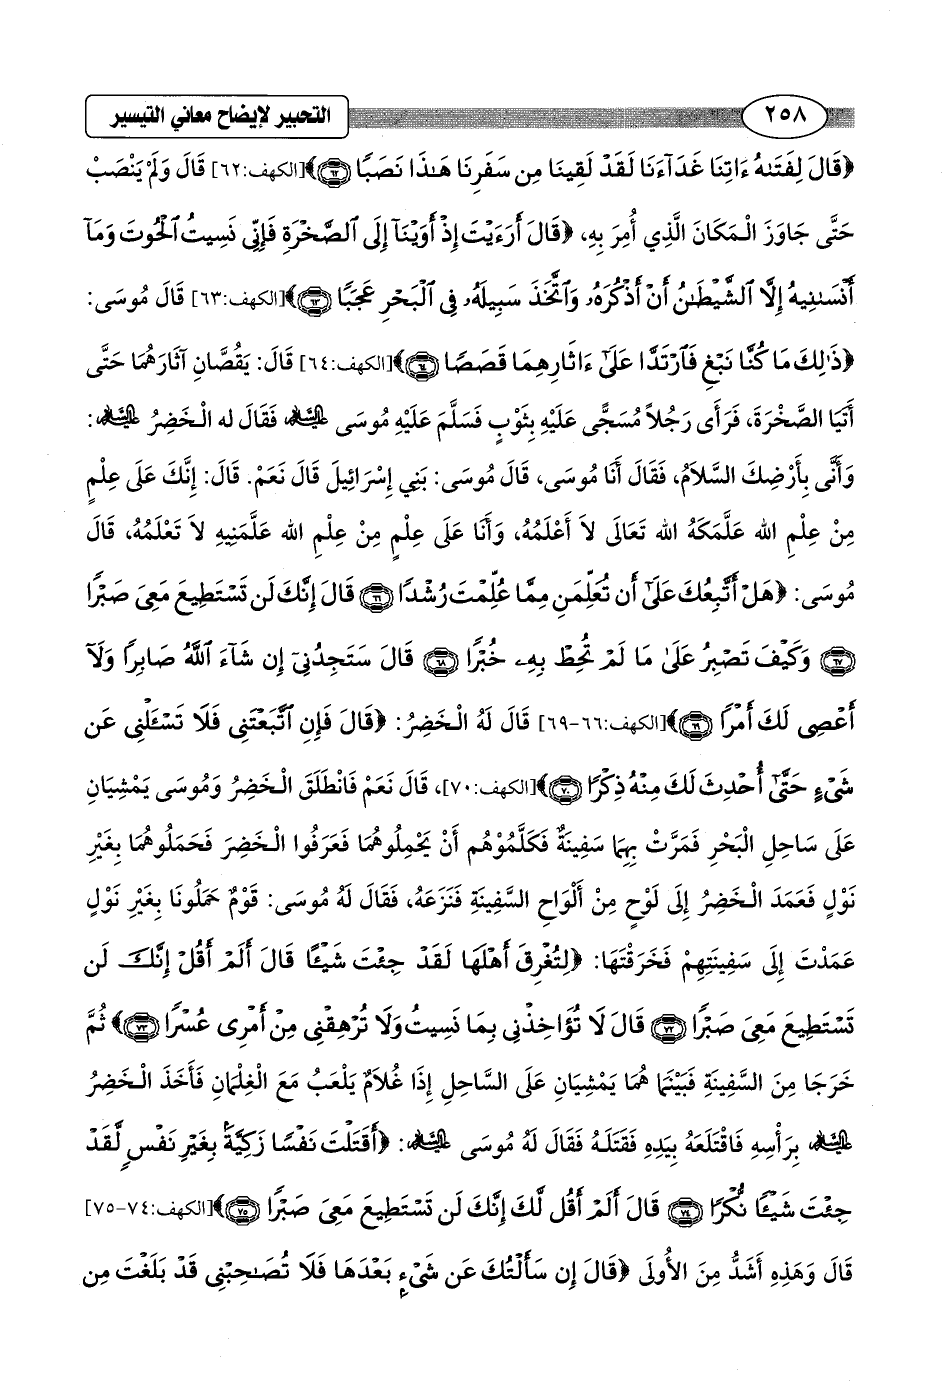 ٢٥٨ التحبير لإيضاح معاني التيسير
﴿قَالَ لِفَتَىٰهُ ءَاتِنَا غَدَآءَنَا لَقَدۡ لَقِينَا مِن سَفَرِنَا هَٰذَا نَصَبٗا ۝٦٢﴾[الكهف:٦٢] قَالَ وَلَمْ يَنْصَبْ
حَتَّى جَاوَزَ الْمَكَانَ الَّذِي أُمِرَ بِهِ، ﴿قَالَ أَرَءَيۡتَ إِذۡ أَوَيۡنَآ إِلَى ٱلصَّخۡرَةِ فَإِنِّي نَسِيتُ ٱلۡحُوتَ وَمَآ
أَنسَىٰنِيهُ إِلَّا ٱلشَّيۡطَٰنُ أَنۡ أَذۡكُرَهُۥ وَٱتَّخَذَ سَبِيلَهُۥ فِي ٱلۡبَحۡرِ عَجَبٗا ۝٦٣﴾[الكهف:٦٣] قَالَ مُوسَى:
﴿ذَٰلِكَ مَا كُنَّا نَبۡغِ فَٱرۡتَدَّا عَلَىٰٓ ءَاثَارِهِمَا قَصَصٗا ۝٦٤﴾[الكهف:٦٤] قَالَ: يَقُصَّانِ آثَارَهُمَا حَتَّى
أَتَيَا الصَّخْرَةَ، فَرَأَى رَجُلاً مُسَجًّى عَلَيْهِ بِثَوْبٍ فَسَلَّمَ عَلَيْهِ مُوسَى عليه السلام فَقَالَ له الْخَضِرُ عليه السلام:
وَأَنَّى بِأَرْضِكَ السَّلاَمُ، فَقَالَ أَنَا مُوسَى، قَالَ مُوسَى: بَنِي إِسْرَائِيلَ قَالَ نَعَمْ. قَالَ: إِنَّكَ عَلَى عِلْمٍ
مِنْ عِلْمِ الله عَلَّمَكَهُ الله تَعَالَى لاَ أَعْلَمُهُ، وَأَنَا عَلَى عِلْمٍ مِنْ عِلْمِ الله عَلَّمَنِيهِ لاَ تَعْلَمُهُ، قَالَ
مُوسَى: ﴿هَلۡ أَتَّبِعُكَ عَلَىٰٓ أَن تُعَلِّمَنِ مِمَّا عُلِّمۡتَ رُشۡدٗا ۝٦٦ قَالَ إِنَّكَ لَن تَسۡتَطِيعَ مَعِيَ صَبۡرٗا
۝٦٧ وَكَيۡفَ تَصۡبِرُ عَلَىٰ مَا لَمۡ تُحِطۡ بِهِۦ خُبۡرٗا ۝٦٨ قَالَ سَتَجِدُنِيٓ إِن شَآءَ ٱللَّهُ صَابِرٗا وَلَآ
أَعۡصِي لَكَ أَمۡرٗا ۝٦٩﴾[الكهف:٦٦-٦٩] قَالَ لَهُ الْخَضِرُ: ﴿قَالَ فَإِنِ ٱتَّبَعۡتَنِي فَلَا تَسۡـَٔلۡنِي عَن
شَيۡءٍ حَتَّىٰٓ أُحۡدِثَ لَكَ مِنۡهُ ذِكۡرٗا ۝٧٠﴾[الكهف:٧٠]، قَالَ نَعَمْ فَانْطَلَقَ الْخَضِرُ وَمُوسَى يَمْشِيَانِ
عَلَى سَاحِلِ الْبَحْرِ فَمَرَّتْ بِهِمَا سَفِينَةٌ فَكَلَّمُوْهُم أَنْ يَحْمِلُوهُمَا فَعَرَفُوا الْخَضِرَ فَحَمَلُوهُمَا بِغَيْرِ
نَوْلٍ فَعَمَدَ الْخَضِرُ إِلَى لَوْحٍ مِنْ أَلْوَاحِ السَّفِينَةِ فَنَزَعَهُ، فَقَالَ لَهُ مُوسَى: قَوْمٌ حَمَلُونَا بِغَيْرِ نَوْلٍ
عَمَدْتَ إِلَى سَفِينَتِهِمْ فَخَرَقْتَهَا: ﴿لِتُغۡرِقَ أَهۡلَهَا لَقَدۡ جِئۡتَ شَيۡـًٔا قَالَ أَلَمۡ أَقُلۡ إِنَّكَ لَن
تَسۡتَطِيعَ مَعِيَ صَبۡرٗا ۝٧٢ قَالَ لَا تُؤَاخِذۡنِي بِمَا نَسِيتُ وَلَا تُرۡهِقۡنِي مِنۡ أَمۡرِي عُسۡرٗا ۝٧٣﴾ ثُمَّ
خَرَجَا مِنَ السَّفِينَةِ فَبَيْنَمَا هُمَا يَمْشِيَانِ عَلَى السَّاحِلِ إِذَا غُلاَمٌ يَلْعَبُ مَعَ الْغِلْمَانِ فَأَخَذَ الْخَضِرُ
عليه السلام بِرَأْسِهِ فَاقْتَلَعَهُ بِيَدِهِ فَقَتَلَهُ فَقَالَ لَهُ مُوسَى عليه السلام: ﴿أَقَتَلۡتَ نَفۡسٗا زَكِيَّةَۢ بِغَيۡرِ نَفۡسٖ لَّقَدۡ
جِئۡتَ شَيۡـٔٗا نُّكۡرٗا ۝٧٤ قَالَ أَلَمۡ أَقُل لَّكَ إِنَّكَ لَن تَسۡتَطِيعَ مَعِيَ صَبۡرٗا ۝٧٥﴾[الكهف:٧٤-٧٥]
قَالَ وَهَذِهِ أَشَدُّ مِنَ الأُولَى ﴿قَالَ إِن سَأَلۡتُكَ عَن شَيۡءِۭ بَعۡدَهَا فَلَا تُصَٰحِبۡنِي قَدۡ بَلَغۡتَ مِن